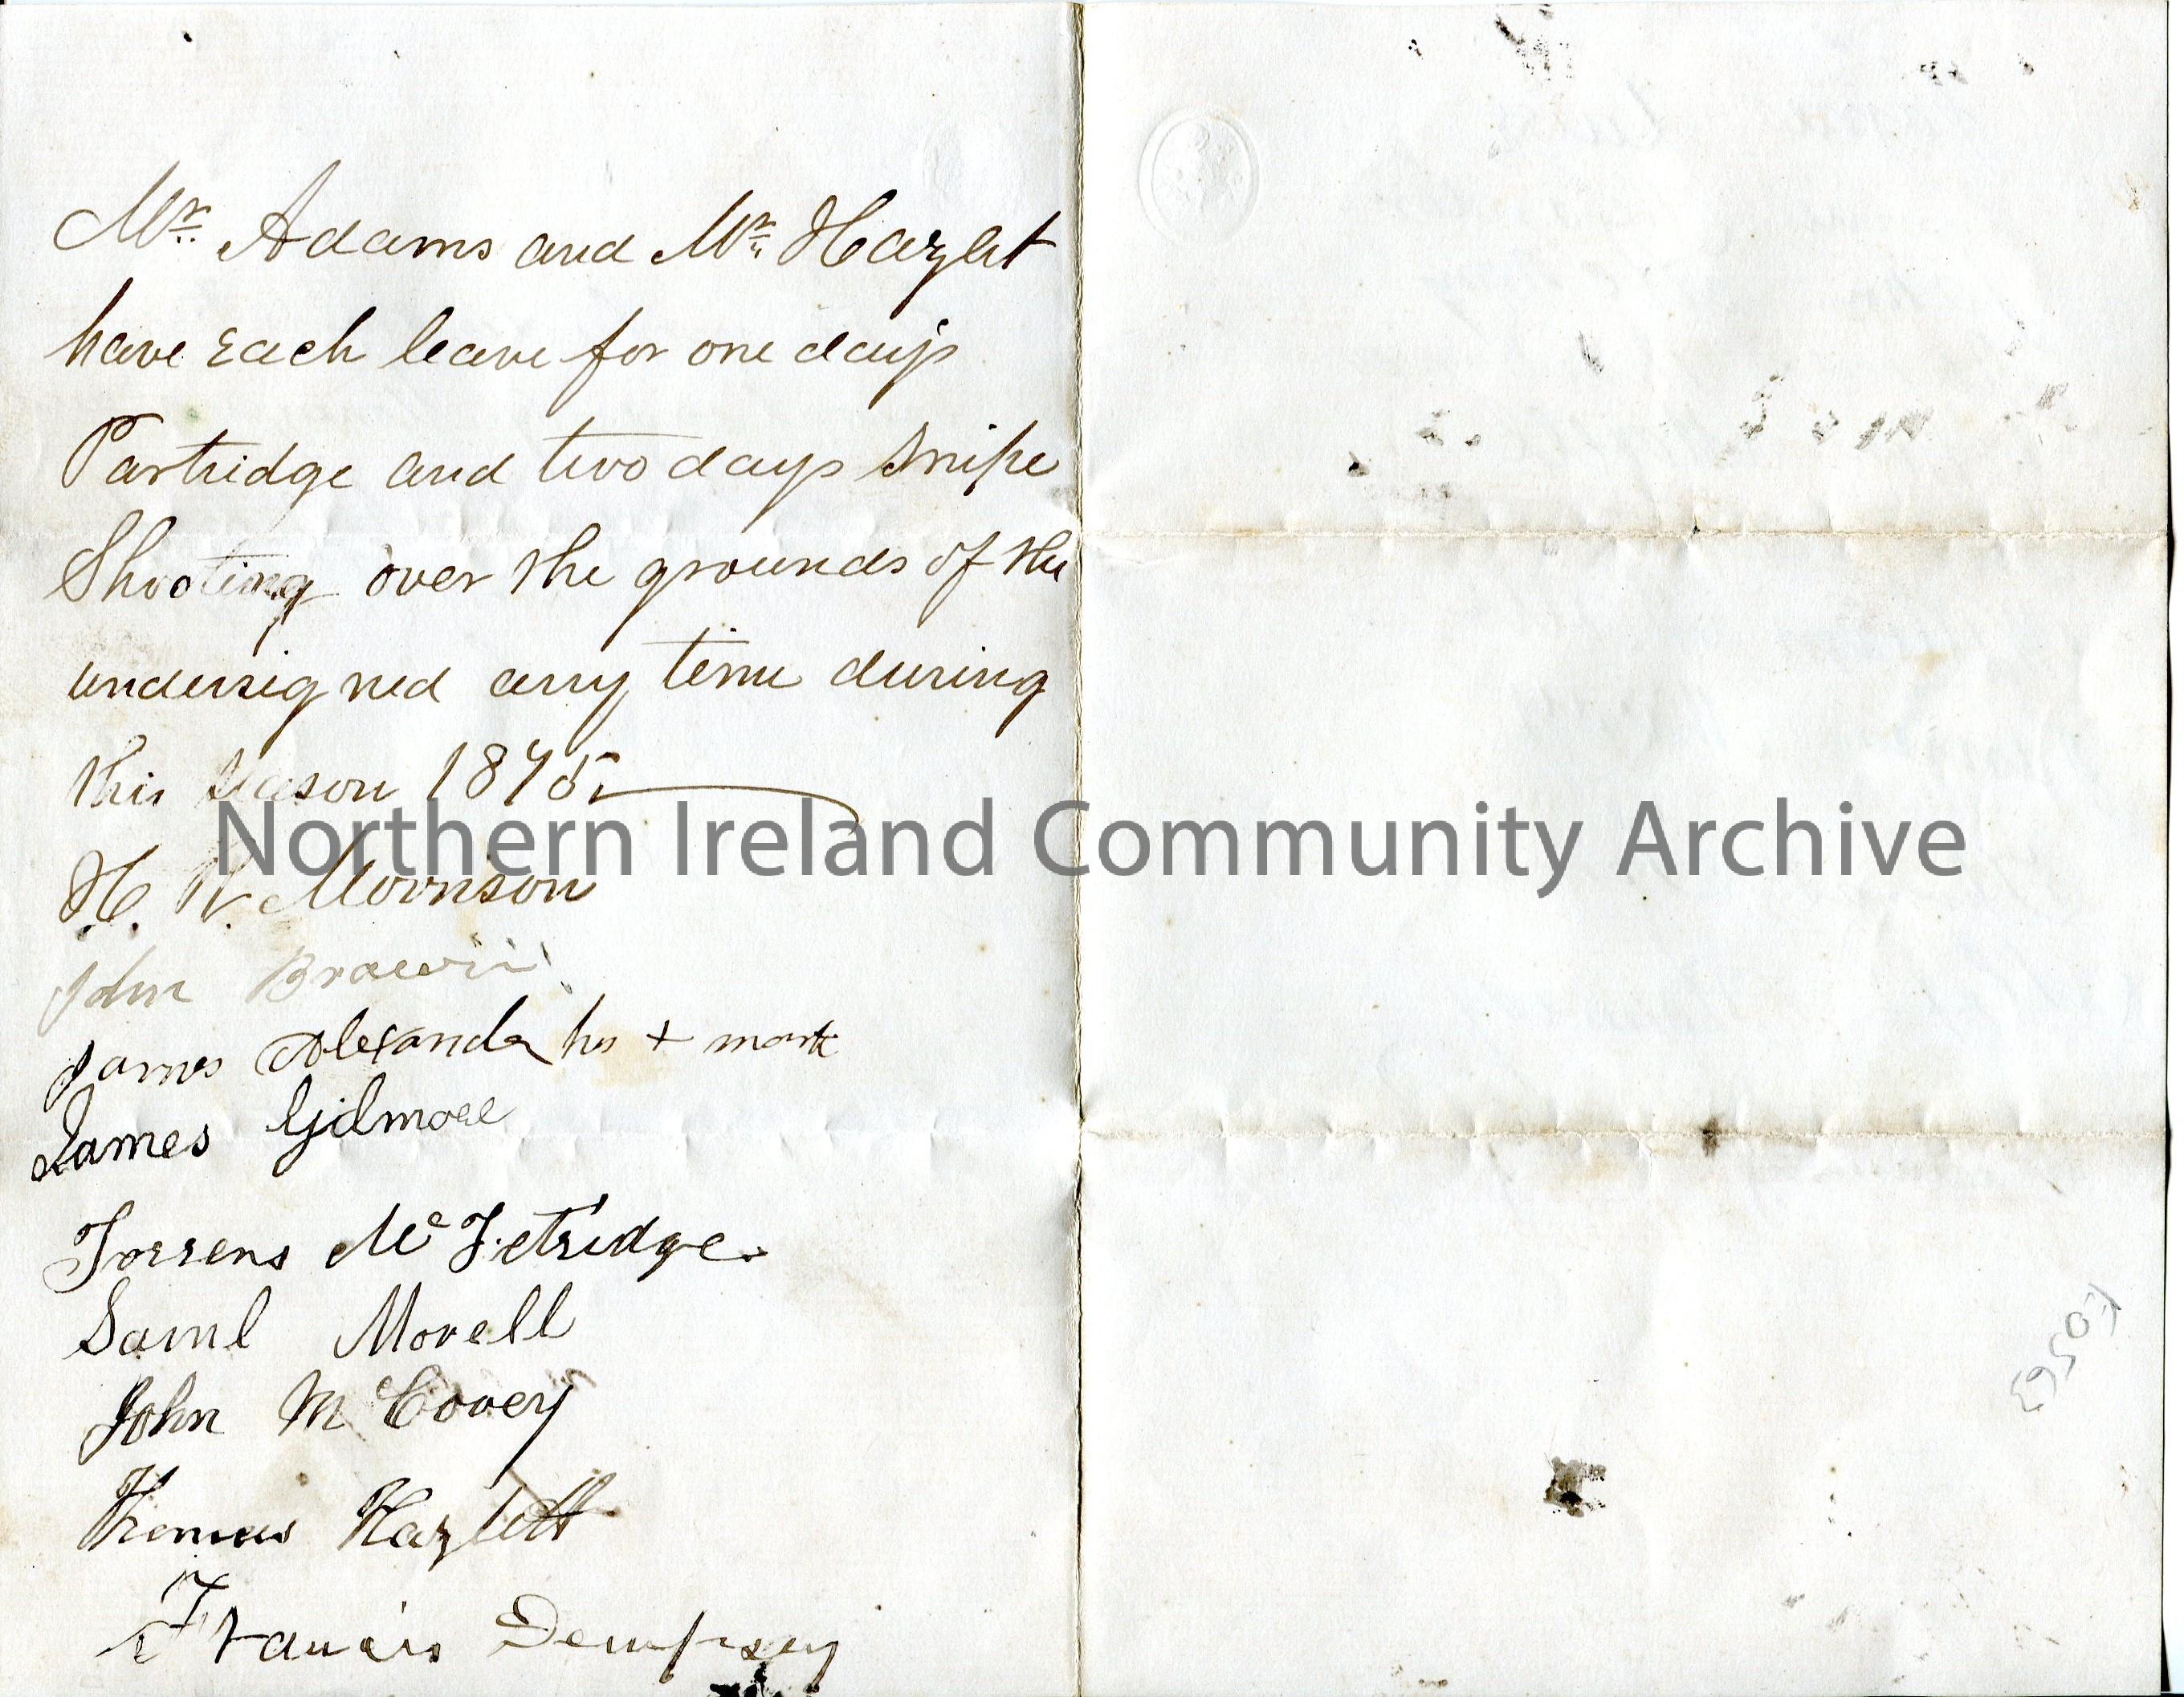 Mr. Adams and Mr. Hazlet
have each leave for one days
Partridge and two days Snipe
Shooting over the grounds of the
undersigned any time during
this season 1875.
Northern Ireland Community Archive
H. W. Morrison
John Brown
James Alexander his + mark
James Gilmore
Torrens Mc Fetridge.
Saml Morell
John Mc Covey
Thomas Hazlett
Francis Dempsey